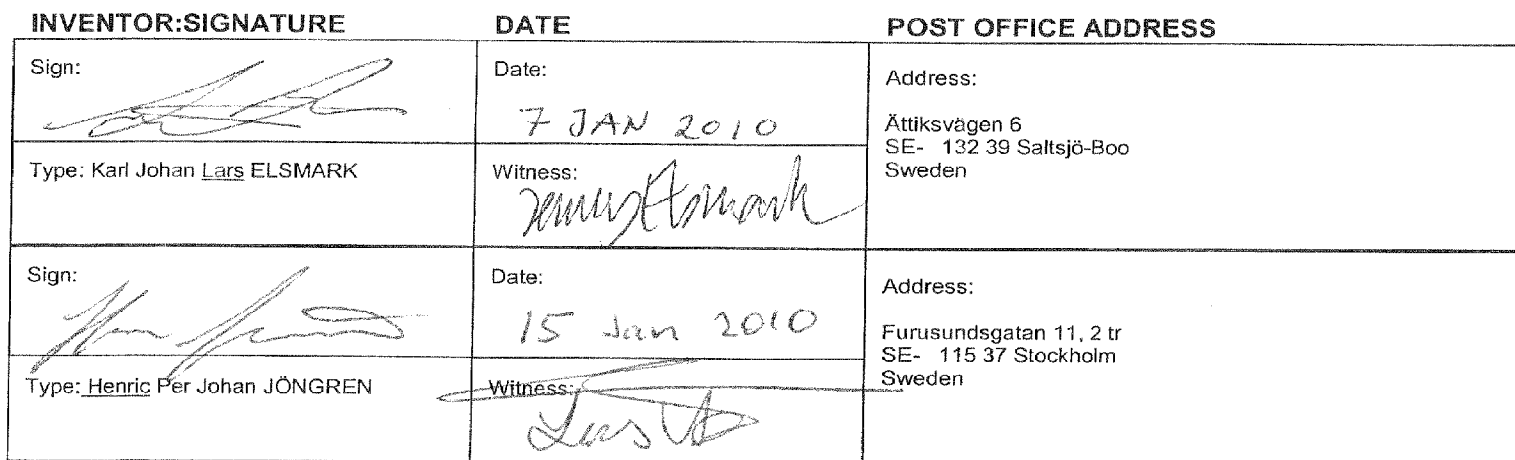 INVENTOR:SIGNATURE DATE POST OFFICE ADDRESS
Sign:
Date:
7 JAN 2010
Address:
Ättiksvägen 6
SE- 132 39 Saltsjö-Boo
Sweden
Type: Karl Johan Lars ELSMARK
Witness:
Sign:
Date:
15 Jan 2010
Address:
Furusundsgatan 11, 2 tr
SE- 115 37 Stockholm
Sweden
Type: Henric Per Johan JÖNGREN
Witness: